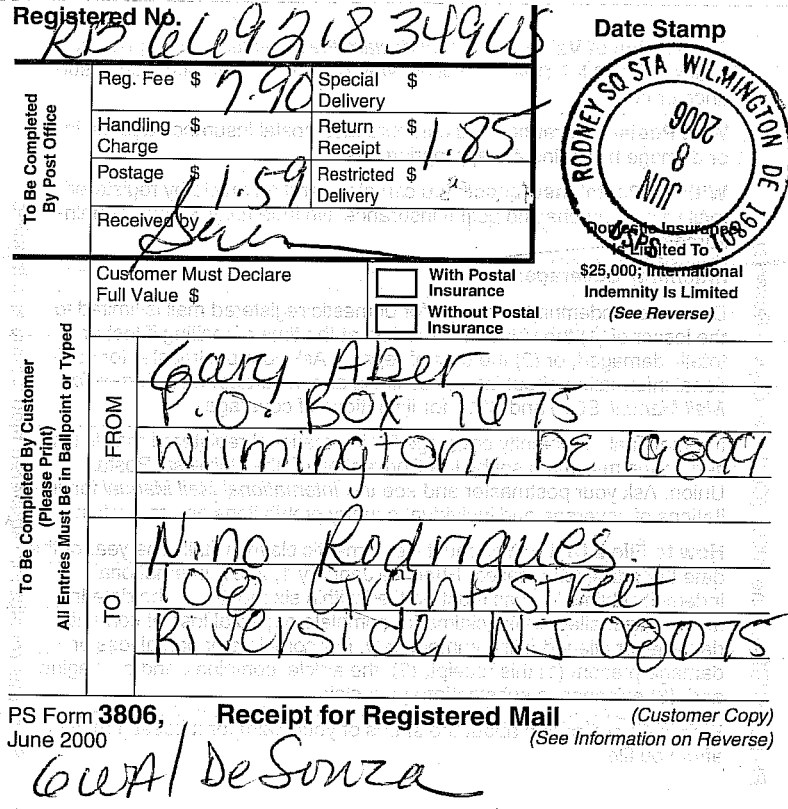 Registered No.
RB 669 218 349 US
Date Stamp
To Be Completed By Post Office
Reg. Fee $ 7.90
Special Delivery $
Handling Charge $
Return Receipt $ 1.85
Postage $ 1.59
Restricted Delivery $
Received by
RODNEY SQ STA WILMINGTON DE 19801
JUN 8 2006
USPS
Domestic Insurance
Is Limited To
$25,000; International
Indemnity Is Limited
(See Reverse)
Customer Must Declare
Full Value $
With Postal
Insurance
Without Postal
Insurance
To Be Completed By Customer
(Please Print)
All Entries Must Be in Ballpoint or Typed
FROM
Gary Aber
P.O. BOX 1675
Wilmington, DE 19899
TO
Nino Rodrigues.
108 Grant street
Riverside, NJ 08075
PS Form 3806, Receipt for Registered Mail (Customer Copy)
June 2000 (See Information on Reverse)
GWA/DeSouza